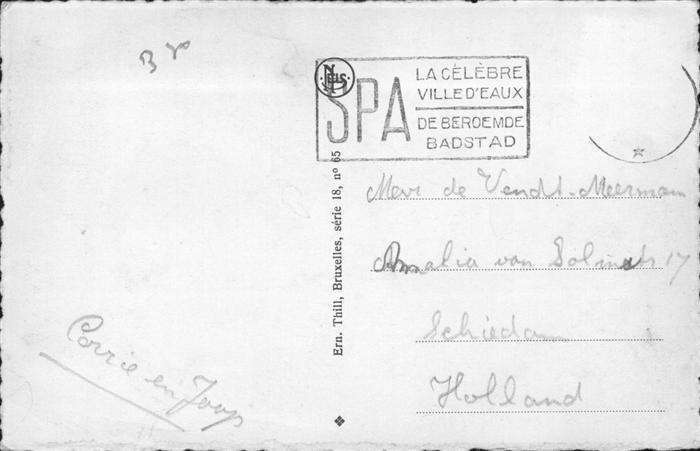 Br
NELS
SPA
LA CÉLÈBRE
VILLE D'EAUX
DE BEROEMDE
BADSTAD
Ern. Thill, Bruxelles, série 18, nº 65
Mevr de Vendt-Meerman
Amalia van Solmstr 17
Schiedam
Holland
Corrie en Joop